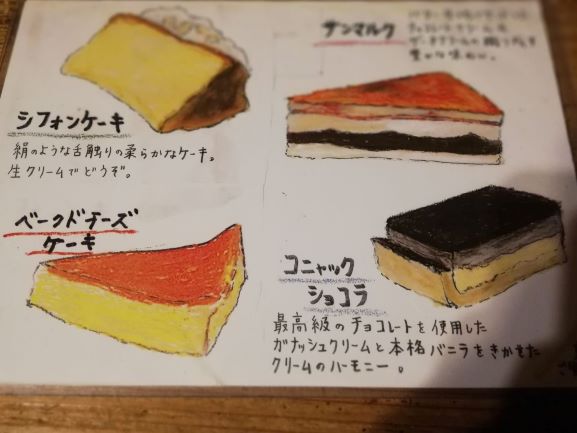 シフォンケーキ
絹のような舌触りの柔らかなケーキ。
生クリームでどうぞ。
サンマルク
豊かな味わい。
ベークドチーズ
ケーキ
コニャック
ショコラ
最高級のチョコレートを使用した
ガナッシュクリームと本格バニラをきかせた
クリームのハーモニー。